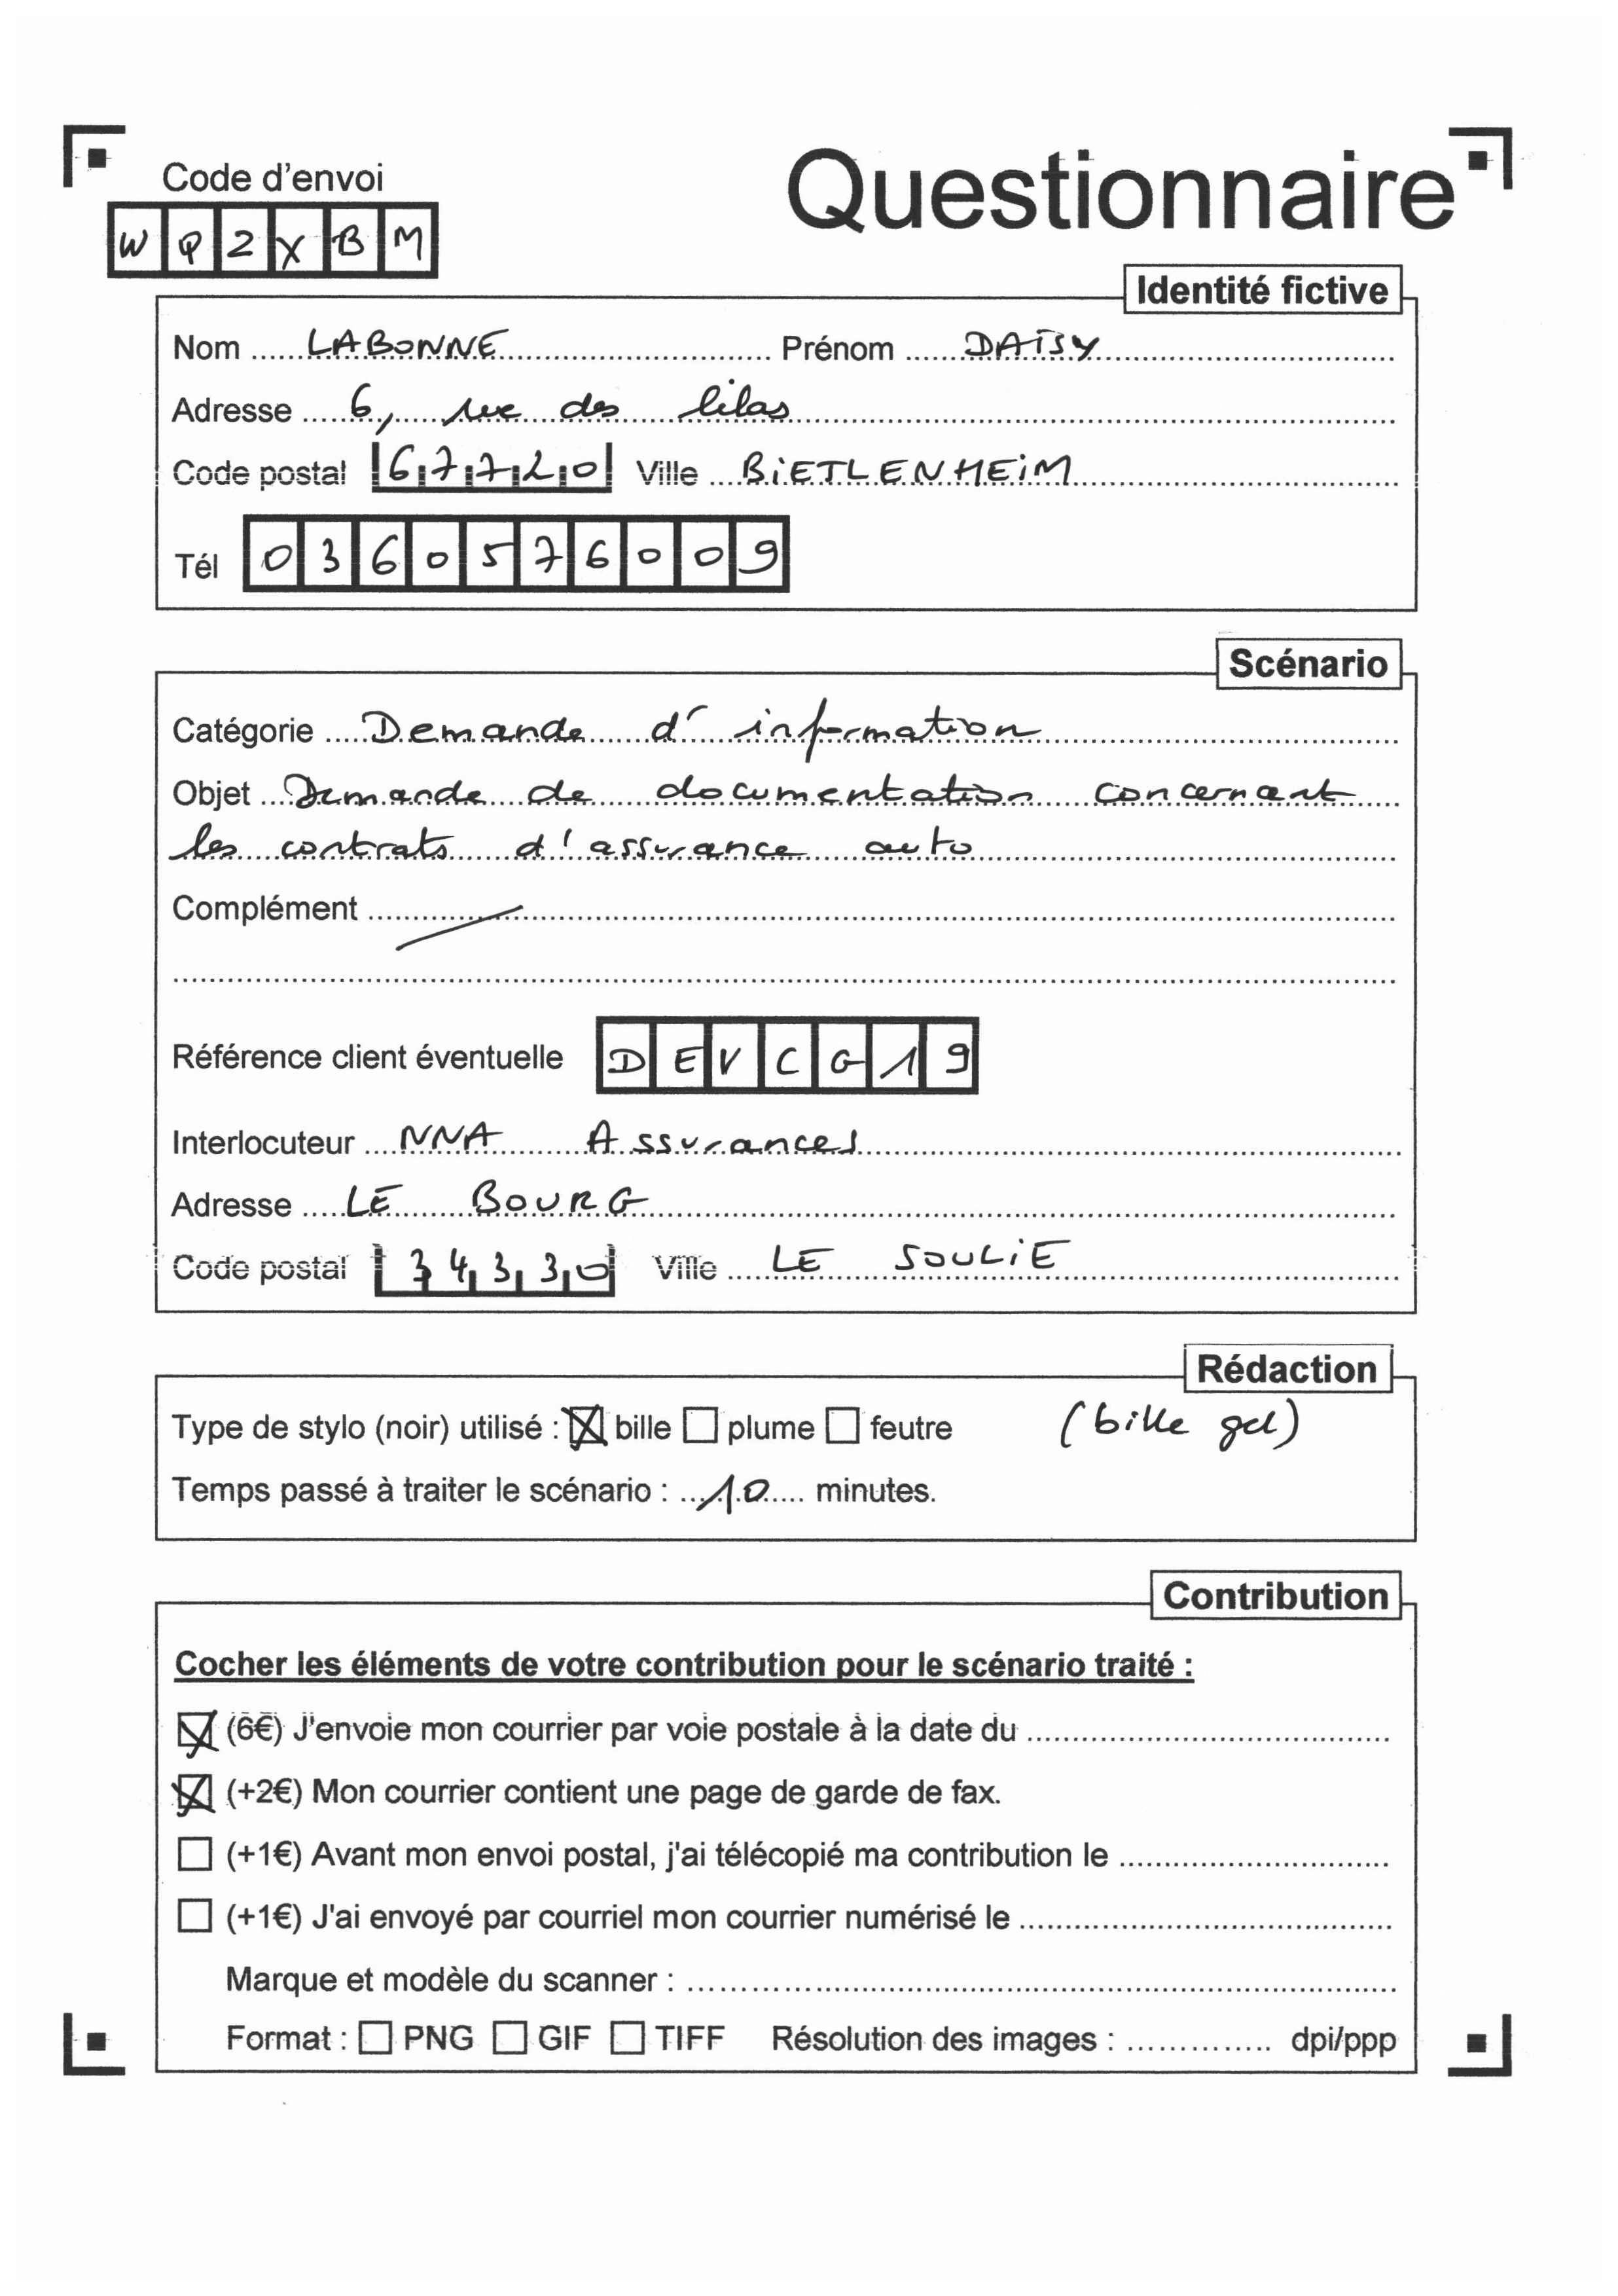 Code d'envoi
Questionnaire
W Q 2 X B M
Identité fictive
Nom LABONNE Prénom DAISY
Adresse 6, rue des lilas
Code postal 67720 Ville BiETLENHEiM
Tél 0360576009
Scénario
Catégorie Demande d'information
Objet Demande de documentation concernant
les contrats d'assurance auto
Complément
Référence client éventuelle DEVCG19
Interlocuteur NNA Assurances
Adresse LE BOURG
Code postal 34330 Ville LE SOULiE
Rédaction
Type de stylo (noir) utilisé : ☒ bille ☐ plume ☐ feutre (bille gel)
Temps passé à traiter le scénario : 10 minutes.
Contribution
Cocher les éléments de votre contribution pour le scénario traité :
☒ (6€) J'envoie mon courrier par voie postale à la date du
☒ (+2€) Mon courrier contient une page de garde de fax.
☐ (+1€) Avant mon envoi postal, j'ai télécopié ma contribution le
☐ (+1€) J'ai envoyé par courriel mon courrier numérisé le
Marque et modèle du scanner :
Format : ☐ PNG ☐ GIF ☐ TIFF Résolution des images : dpi/ppp